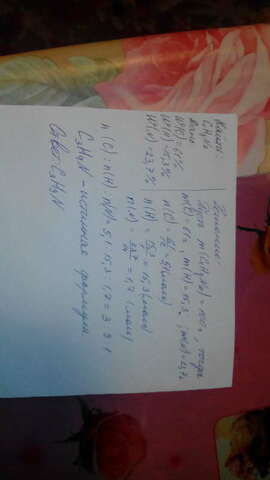 Найти
CxHyNz
Дано
W(C)=61%
W(H)=15,3%
W(N)=23,7%
Решение:
Пусть m(CxHyNz)=100г, тогда
m(C)=61г, m(H)=15,3г, m(N)=23,7г
n(C)=61/12=5,1(моль)
n(H)=15,3/1=15,3(моль)
n(N)=23,7/14=1,7(моль)
n(C):n(H):n(N)=5,1:15,3:1,7=3:9:1
C3H9N - истинная формула
Ответ: C3H9N